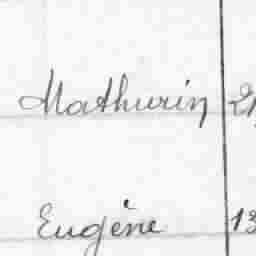 Mathurin
Eugène 13